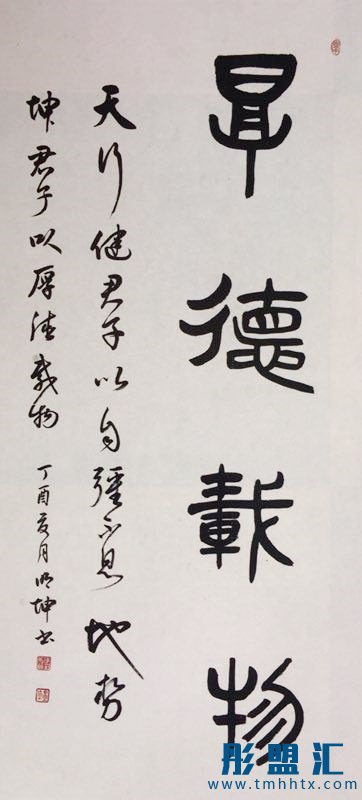 厚德载物
天行健君子以自强不息地势
坤君子以厚德载物
丁酉亥月明坤书
彤盟汇
www.tmhhtx.com